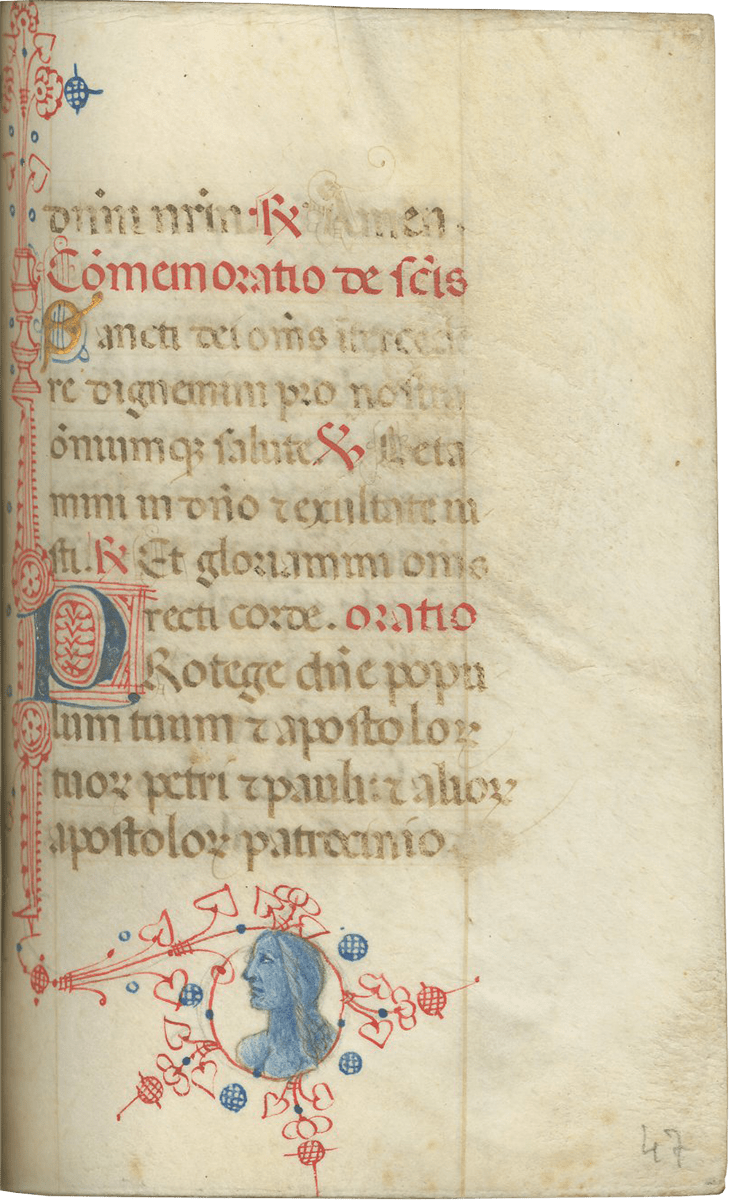 dn̄m nr̄m. ℟ Amen.
Cōmemoratio de sc̄is
Sancti dei om̄s ītercede
re dignemini pro nostra
ōniumqꝫ salute. ℣ Leta
mini in dn̄o ⁊ exultate iu
sti. ℟ Et gloriamini om̄s
recti corde. oratio
PRotege dn̄e popu
lum tuum ⁊ apostoloꝝ
tuoꝝ petri ⁊ pauli: ⁊ alioꝝ
apostoloꝝ patrocinio
47